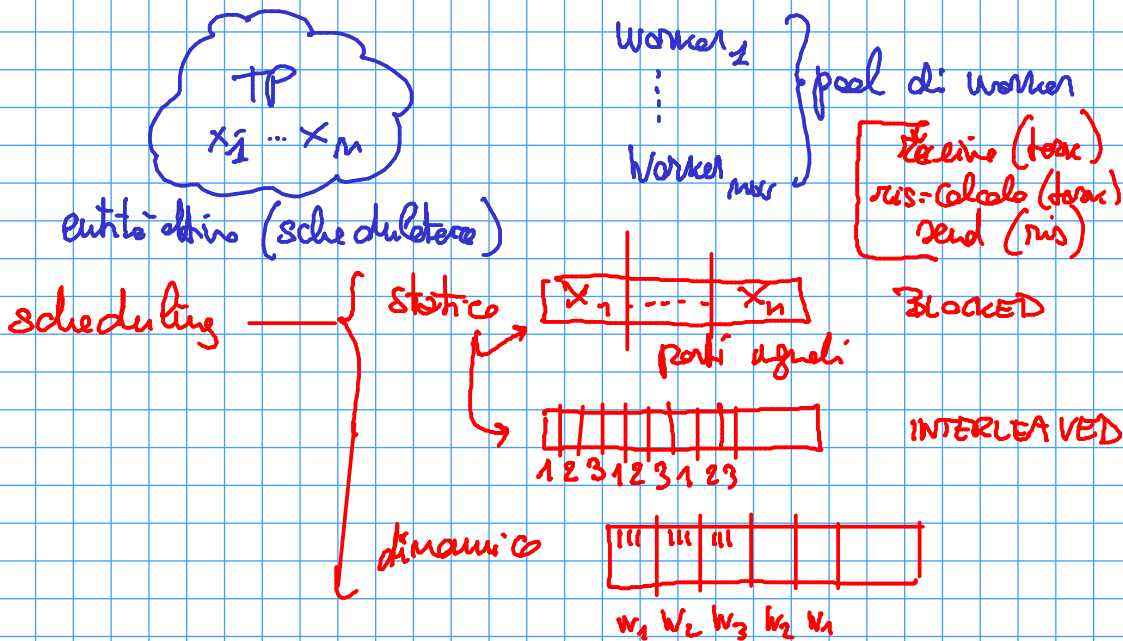 TP
x1 ... xn
entità attiva (schedulatore)
Worker1
Workernw
pool di worker
receive (task)
ris=calcolo (task)
send (ris)
scheduling
statico
x1 ---- xn
BLOCKED
parti uguali
INTERLEAVED
1 2 3 1 2 3 1 2 3
dinamico
W1 W2 W3 W2 W1